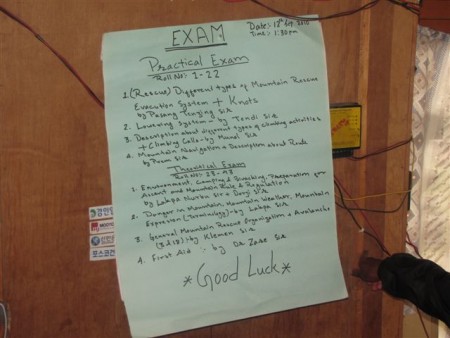 EXAM
Date:- 12th Sep.
Time:- 1:30pm
Practical Exam
Roll No: 1-22
1. (Rescue) Different types of Mountain Rescue
Evacuation System + Knots
by Pasang Tenzing Sir
2. Lowering System - by Tendi Sir
3. Description about different types of climbing activities
+ Climbing Calls - by Sir
4. Mountain Navigation + Description about Route
by Sir
Theoretical Exam
Roll No: 23-43
1. Environment, Camping & Preparation for
Ascent and Mountain Rule & Regulation
by Lakpa Norbu Sir + Sir
2. Danger in Mountain, Mountain Weather, Mountain
Expression (Terminology) - by Lakpa Sir
3. General Mountain Rescue Organization + Avalanche
by Klemen Sir
4. First Aid :- by Da Sir
*Good Luck*